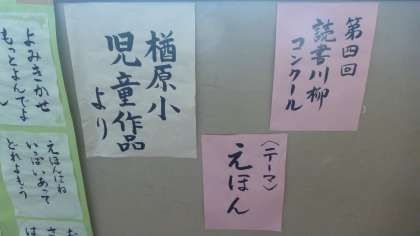 第四回
読書川柳
コンクール
〈テーマ〉
えほん
楢原小
児童作品
より
よみきかせ
もっとよんでよ
えほんはね
いっぱいあって
どれよもう